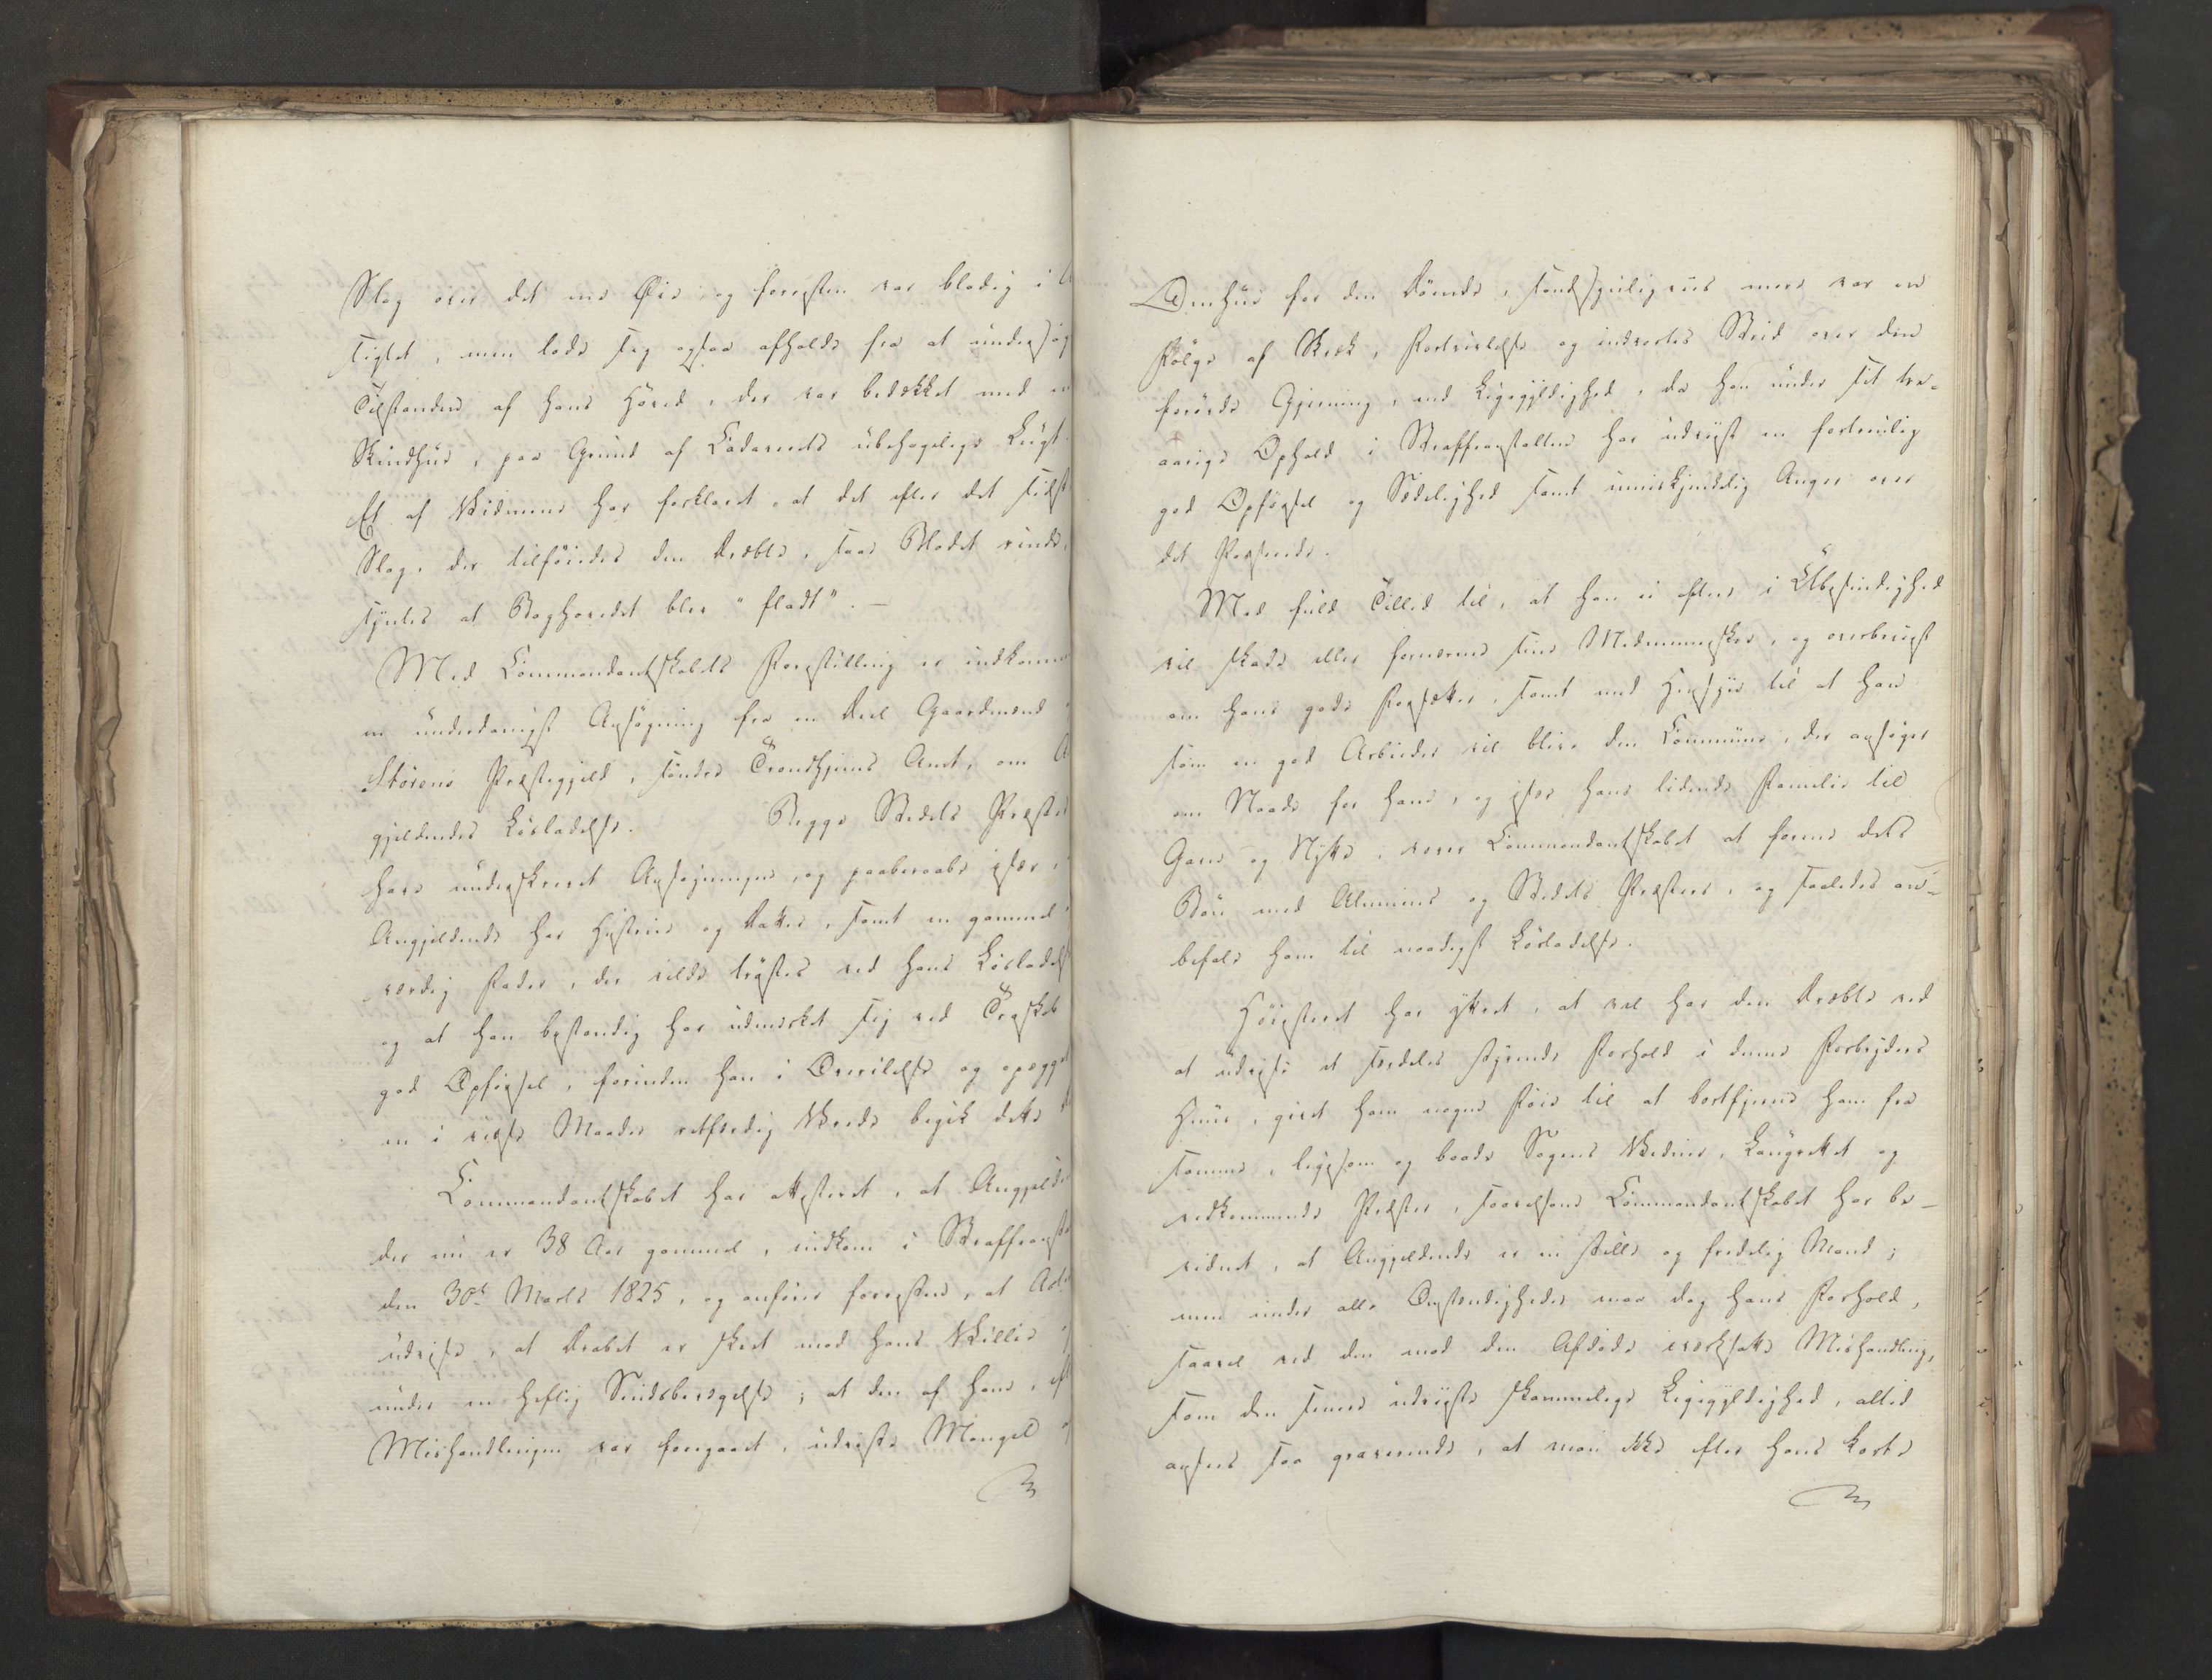 Slag over det ene Øie og forresten var blodig i A
sigtet, men lode sig ogsaa afholde fra at undersøg
Tilstanden af hans Hoved, der var bedækket med en
Skindhue, paa Grund af Cadaverets ubehagelige Lugt.
Et af Vidnerne har forklaret, at det efter det sidst
Slag, der tilføiedes den Dræbte, saae Blodet rinde,
syntes at Baghovedet blev "fladt". —
Med Commandantskabets Forestilling er indkomm
en underdanigst Ansøgning fra en Deel Gaardmænd
Størens Præstegjeld, søndre Trondhjems Amt, om A
gjeldendes Løsladelse. Begge Stedets Præster
have underskrevet Ansøgningen, og paaberaabe især,
Angjeldende har Hustrue og Datter, samt en gammel
værdig Fader, der vilde trøstes ved hans Løsladels
og at han bestandig har udmærket sig ved Troskab
god Opførsel, forinden han i Overilelse og opægget
en i visse Maader retfærdig Vrede begik dette
Commandantskabet har attesteret, at Angjelde
der nu er 38 Aar gammel, indkom i Straffeanst
den 30te Marts 1825, og anfører forresten, at Act
udvise, at Drabet er skeet mod hans Villie og
under en heftig Sindsbevægelse; at den af ham, eft
Mishandlingen var foregaaet, udviste Mangel
Omhue for den Dømte, sandsynligviis mere var en
Følge af Skræk, Fortvivlelse og indvortes Strid over den
forøvede Gjerning, end Ligegyldighed, da han under sit tre-
aarige Ophold i Straffeanstalten har udviist en fortrinlig
god Opførsel og Sædelighed samt umiskjendelig Anger over
det Passerede.
Med fuld Tillid til, at han ei oftere i Ubesindighed
vil skade eller fornærme sine Medmennesker, og overbeviist
om hans gode Forsætter, samt med Hensyn til at han
som en god Arbeider vil blive den Commune, der ansøger
om Naade for ham, og især hans lidende Familie til
Gavn og Nytte, vover Commandantskabet at forene dets
Bøn med Almuens og Stedets Præsters, og saaledes an-
befale ham til naadigst Løsladelse.
Høiesteret har yttret, at vel har den Dræbte ved
at udvise et særdeles styrende Forhold i denne Forbryders
Huus, givet ham nogen Føie til at bortfjerne ham fra
samme, ligesom og baade Sagens Vidner, Laugrettet og
vedkommende Præster, saavelsom Commandantskabet har be-
vidnet, at Angjeldende er en stille og fredelig Mand;
men under alle Omstændigheder maa dog hans Forhold,
saavel ved den mod den Afdøde iværksatte Mishandling,
som den senere udviiste skammelige Ligegyldighed, altid
ansees saa graverende, at man ikke efter hans korte